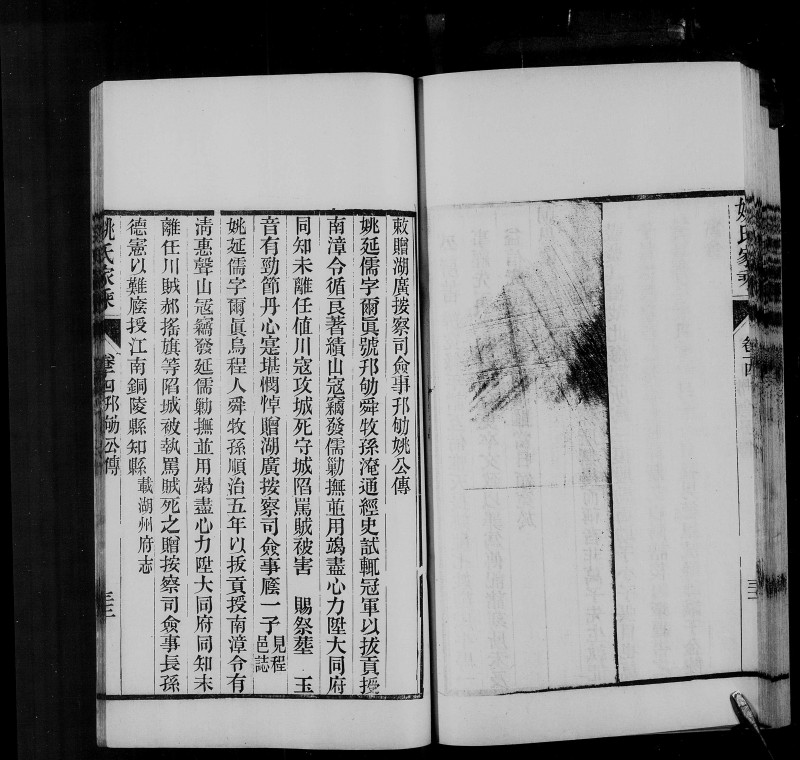 姚氏家乘
卷四
三
敕贈湖廣按察司僉事邘劬姚公傳
姚延儒字爾眞號邘劬舜牧孫淹通經史試輒冠軍以拔貢授
南漳令循良著績山寇竊發儒勦撫並用竭盡心力陞大同府
同知未離任値川寇攻城死守城陷罵賊被害 賜祭塟 玉
音有勁節丹心寔堪憫悼贈湖廣按察司僉事廕一子見程邑誌
姚延儒字爾眞烏程人舜牧孫順治五年以拔貢授南漳令有
淸惠聲山寇竊發延儒勦撫並用竭盡心力陞大同府同知未
離任川賊郝搖旗等陷城被執罵賊死之贈按察司僉事長孫
德憲以難廕授江南銅陵縣知縣載湖州府志
姚氏家乘
卷四邘劬公傳
三